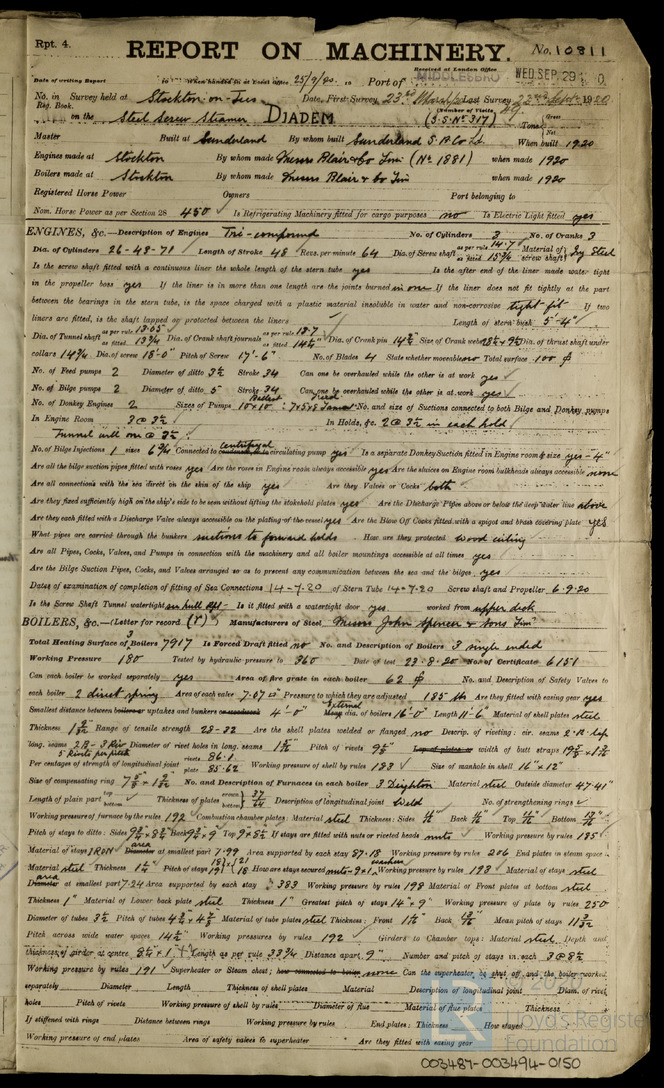 Rpt. 4.
REPORT ON MACHINERY. No. 10811
Received at London Office
Date of writing Report When handed in at Local Office 25/9/20. Port of MIDDLESBRO WED. SEP. 29
No. in Survey held at Stockton-on-Tees Date, First Survey 23rd Last Survey 1920
Reg. Book. (Number of Visits
on the Steel Screw Steamer DIADEM (S.S. No 317) Tons Gross Net
Master Built at Sunderland By whom built Sunderland S.B. Co Ld. When built 1920
Engines made at Stockton By whom made Messrs Blair & Co Lim (No 1881) when made 1920
Boilers made at Stockton By whom made Messrs Blair & Co Lim when made 1920
Registered Horse Power Owners Port belonging to
Nom. Horse Power as per Section 28 450 Is Refrigerating Machinery fitted for cargo purposes no Is Electric Light fitted yes
ENGINES, &c.—Description of Engines Tri-compound No. of Cylinders 3 No. of Cranks 3
Dia. of Cylinders 26-43-71 Length of Stroke 48 Revs. per minute 64 Dia. of Screw shaft as per rule 14.7 as fitted 15 3/4 Material of screw shaft Ing Steel
Is the screw shaft fitted with a continuous liner the whole length of the stern tube yes Is the after end of the liner made water tight
in the propeller boss yes If the liner is in more than one length are the joints burned in one If the liner does not fit tightly at the part
between the bearings in the stern tube, is the space charged with a plastic material insoluble in water and non-corrosive tight fit If two
liners are fitted, is the shaft lapped or protected between the liners Length of stern bush 5'-4"
Dia. of Tunnel shaft as per rule 13.05 as fitted 13 3/4 Dia. of Crank shaft journals as per rule 13.7 as fitted 14 1/4" Dia. of Crank pin 14 1/2" Size of Crank webs Dia. of thrust shaft under
collars 14 3/4 Dia. of screw 18'-0" Pitch of Screw 17'-6" No. of Blades 4 State whether moveable no Total surface 100
No. of Feed pumps 2 Diameter of ditto 3 1/2 Stroke 34 Can one be overhauled while the other is at work yes
No. of Bilge pumps 2 Diameter of ditto 5 Stroke 34 Can one be overhauled while the other is at work yes
No. of Donkey Engines 2 Sizes of Pumps Ballast 10x10 Feed No. and size of Suctions connected to both Bilge and Donkey pumps
In Engine Room 3 @ 3 1/2 In Holds, &c. 2 @ 3 1/2 in each hold
Tunnel well one @ 3 1/2
No. of Bilge Injections 1 sizes 6 3/4 Connected to centrifugal circulating pump yes Is a separate Donkey Suction fitted in Engine room & size yes - 4"
Are all the bilge suction pipes fitted with roses yes Are the roses in Engine room always accessible yes Are the sluices on Engine room bulkheads always accessible none
Are all connections with the sea direct on the skin of the ship yes Are they Valves or Cocks both
Are they fixed sufficiently high on the ship's side to be seen without lifting the stokehold plates yes Are the Discharge Pipes above or below the deep water line above
Are they each fitted with a Discharge Valve always accessible on the plating of the vessel yes Are the Blow Off Cocks fitted with a spigot and brass covering plate yes
What pipes are carried through the bunkers suctions to forward holds How are they protected wood ceiling
Are all Pipes, Cocks, Valves, and Pumps in connection with the machinery and all boiler mountings accessible at all times yes
Are the Bilge Suction Pipes, Cocks, and Valves arranged so as to prevent any communication between the sea and the bilges yes
Dates of examination of completion of fitting of Sea Connections 14-7-20 of Stern Tube 14-7-20 Screw shaft and Propeller 6.9.20
Is the Screw Shaft Tunnel watertight see hull Rpt - Is it fitted with a watertight door yes worked from upper deck
BOILERS, &c.—(Letter for record (r)) Manufacturers of Steel Messrs John Spencer & Sons Lim
Total Heating Surface of 3 Boilers 7917 Is Forced Draft fitted no No. and Description of Boilers 3 single ended
Working Pressure 180 Tested by hydraulic pressure to 360 Date of test 23.8.20 No. of Certificate 6151
Can each boiler be worked separately yes Area of fire grate in each boiler 62 No. and Description of Safety Valves to
each boiler 2 direct spring Area of each valve 7.07 Pressure to which they are adjusted 185 lbs Are they fitted with easing gear yes
Smallest distance between boilers or uptakes and bunkers 4'-0" External dia. of boilers 16'-0" Length 11'-6" Material of shell plates steel
Thickness Range of tensile strength 28-32 Are the shell plates welded or flanged no Descrip. of riveting: cir. seams 2.R. lap
long. seams 2B - 3 Riv Diameter of rivet holes in long. seams Pitch of rivets width of butt straps
5 Rivets per pitch
Per centages of strength of longitudinal joint rivets 86.1 plate 85.62 Working pressure of shell by rules 183 Size of manhole in shell 16" x 12"
Size of compensating ring No. and Description of Furnaces in each boiler 3 Deighton Material steel Outside diameter 47.41"
Length of plain part top bottom Thickness of plates crown bottom 37/64 Description of longitudinal joint Weld No. of strengthening rings
Working pressure of furnace by the rules 192 Combustion chamber plates: Material steel Thickness: Sides Back Top Bottom
Pitch of stays to ditto: Sides Back Top If stays are fitted with nuts or riveted heads nuts Working pressure by rules 185
Material of stays IRON area at smallest part 7.99 Area supported by each stay 87.18 Working pressure by rules 206 End plates in steam space:
Material steel Thickness Pitch of stays How are stays secured Working pressure by rules 193 Material of stays steel
area at smallest part 7.24 Area supported by each stay 383 Working pressure by rules 198 Material of Front plates at bottom steel
Thickness 1" Material of Lower back plate steel Thickness 1" Greatest pitch of stays 14" x 9" Working pressure of plate by rules 250
Diameter of tubes 3 1/2 Pitch of tubes Material of tube plates steel Thickness: Front Back Mean pitch of stays
Pitch across wide water spaces 14 1/2" Working pressures by rules 192 Girders to Chamber tops: Material steel Depth and
thickness of girder at centre Length as per rule 33 3/4 Distance apart 9" Number and pitch of stays in each 3 @ 8 1/2
Working pressure by rules 191 Superheater or Steam chest; how connected to boiler none Can the superheater be shut off and the boiler worked
separately Diameter Length Thickness of shell plates Material Description of longitudinal joint Diam. of rivet
holes Pitch of rivets Working pressure of shell by rules Diameter of flue Material of flue plates Thickness
If stiffened with rings Distance between rings Working pressure by rules End plates: Thickness How stayed
Working pressure of end plates Area of safety valves to superheater Are they fitted with easing gear
Lloyd's Register
Foundation
003487-003494-0150